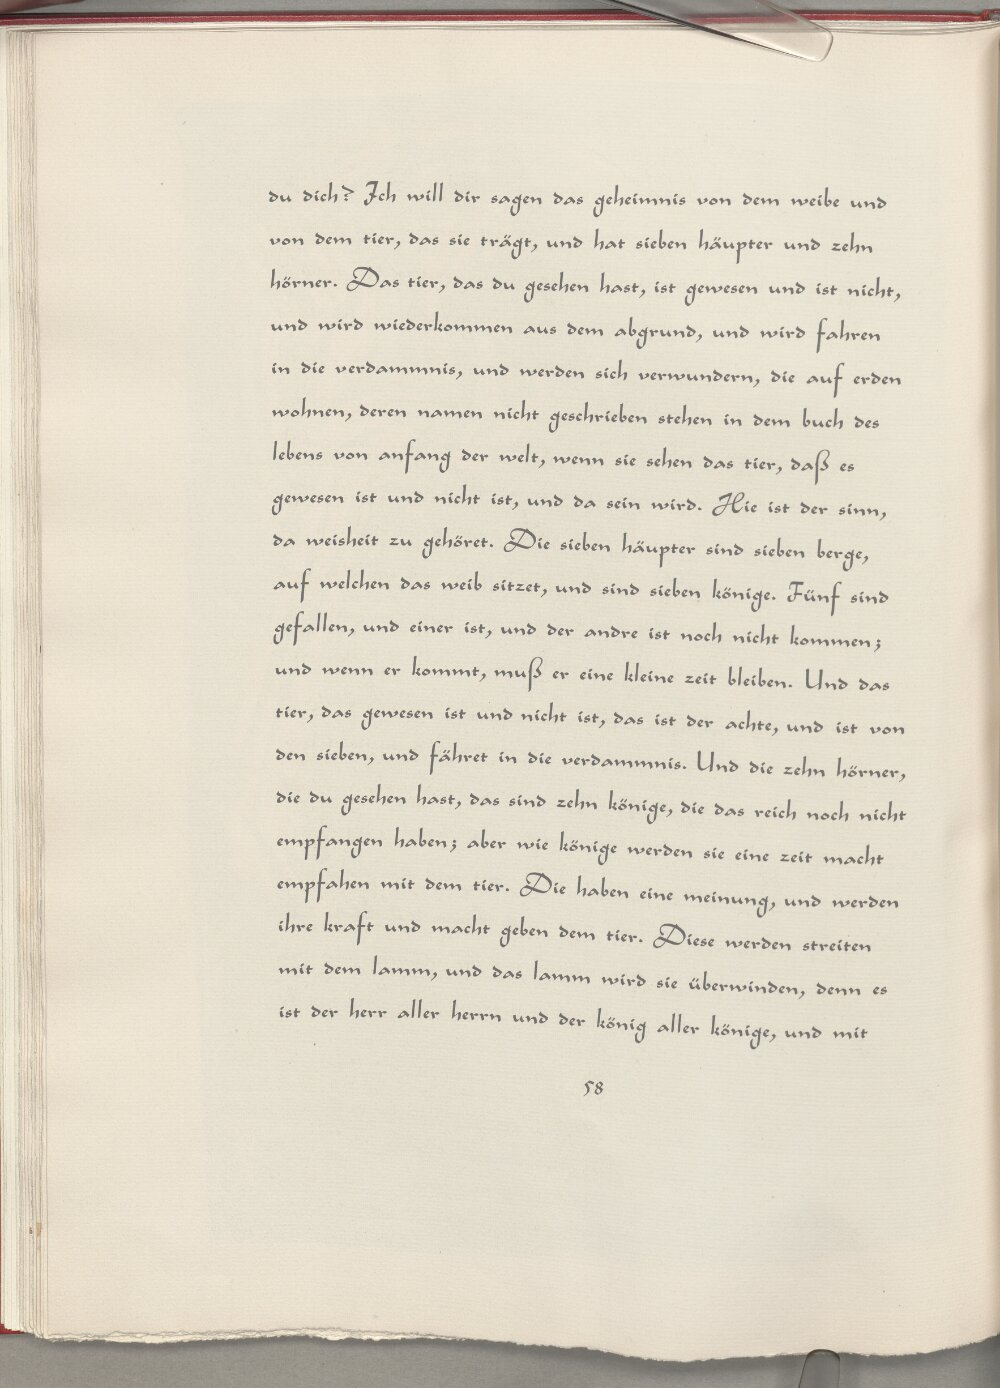 du dich? Ich will dir sagen das geheimnis von dem weibe und
von dem tier, das sie trägt, und hat sieben häupter und zehn
hörner. Das tier, das du gesehen hast, ist gewesen und ist nicht,
und wird wiederkommen aus dem abgrund, und wird fahren
in die verdammnis, und werden sich verwundern, die auf erden
wohnen, deren namen nicht geschrieben stehen in dem buch des
lebens von anfang der welt, wenn sie sehen das tier, daß es
gewesen ist und nicht ist, und da sein wird. Hie ist der sinn,
da weisheit zu gehöret. Die sieben häupter sind sieben berge,
auf welchen das weib sitzet, und sind sieben könige. Fünf sind
gefallen, und einer ist, und der andre ist noch nicht kommen;
und wenn er kommt, muß er eine kleine zeit bleiben. Und das
tier, das gewesen ist und nicht ist, das ist der achte, und ist von
den sieben, und fähret in die verdammnis. Und die zehn hörner,
die du gesehen hast, das sind zehn könige, die das reich noch nicht
empfangen haben; aber wie könige werden sie eine zeit macht
empfahen mit dem tier. Die haben eine meinung, und werden
ihre kraft und macht geben dem tier. Diese werden streiten
mit dem lamm, und das lamm wird sie überwinden, denn es
ist der herr aller herrn und der könig aller könige, und mit
58